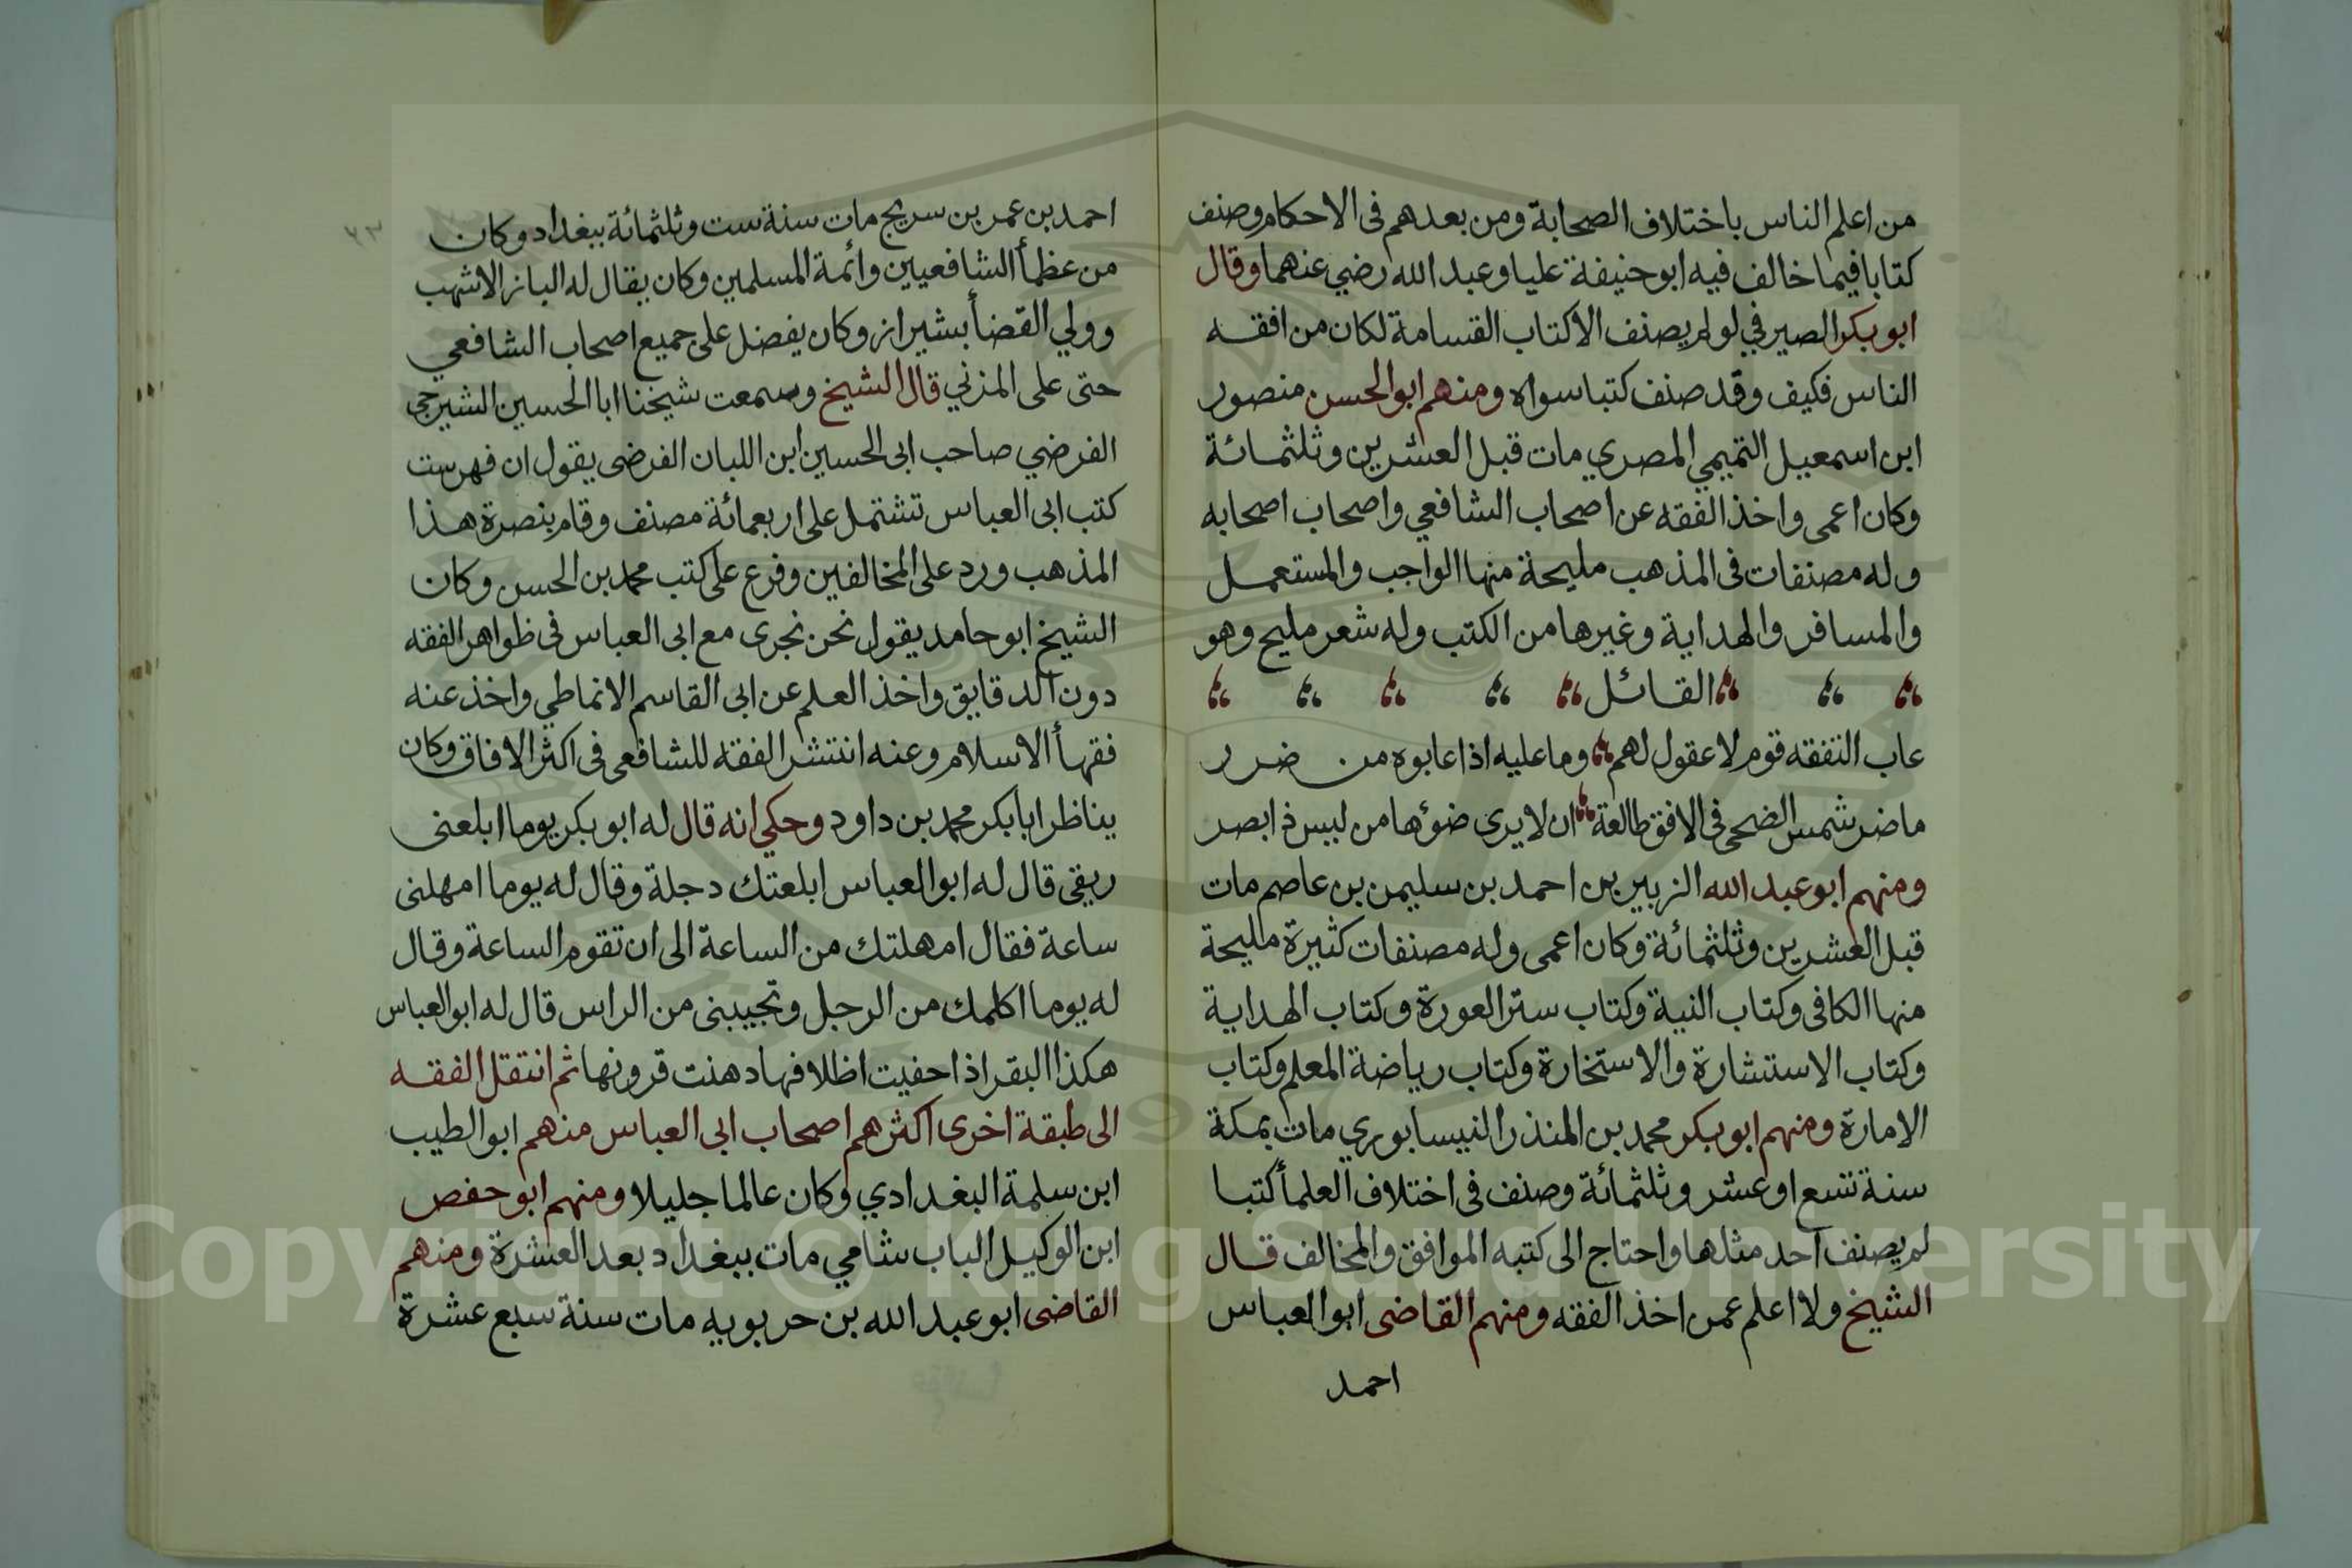 من اعلم الناس باختلاف الصحابة ومن بعدهم فى الاحكام وصنف
كتابا فيما خالف فيه ابو حنيفة عليا وعبد الله رضي عنهما وقال
ابو بكر الصيرفي لو لم يصنف الا كتاب القسامة لكان من افقه
الناس فكيف وقد صنف كتبا سواه ومنهم ابو الحسن منصور
ابن اسمعيل التميمي المصري مات قبل العشرين وثلثمائة
وكان اعمى واخذ الفقه عن اصحاب الشافعي واصحاب اصحابه
وله مصنفات فى المذهب مليحة منها الواجب والمستعمل
والمسافر والهداية وغيرها من الكتب وله شعر مليح وهو
القائل
عاب التفقه قوم لا عقول لهم وما عليه اذا عابوه من ضرر
ما ضر شمس الضحى فى الافق طالعة ان لا يرى ضوءها من ليس ذا بصر
ومنهم ابو عبد الله الزبير بن احمد بن سليمن بن عاصم مات
قبل العشرين وثلثمائة وكان اعمى وله مصنفات كثيرة مليحة
منها الكافى وكتاب النية وكتاب ستر العورة وكتاب الهداية
وكتاب الاستشارة والاستخارة وكتاب رياضة المعلم وكتاب
الامارة ومنهم ابو بكر محمد بن المنذر النيسابوري مات بمكة
سنة تسع او عشر وثلثمائة وصنف فى اختلاف العلمأ كتبا
لم يصنف احد مثلها واحتاج الى كتبه الموافق والمخالف قال
الشيخ ولا اعلم عمن اخذ الفقه ومنهم القاضى ابو العباس
احمد
احمد بن عمر بن سريج مات سنة ست وثلثمائة ببغداد وكان
من عظمأ الشافعيين وائمة المسلمين وكان يقال له الباز الاشهب
وولي القضأ بشيراز وكان يفضل على جميع اصحاب الشافعي
حتى على المزني قال الشيخ وسمعت شيخنا ابا الحسين الشيرجي
الفرضي صاحب ابى الحسين ابن اللبان الفرضى يقول ان فهرست
كتب ابى العباس تشتمل على اربعمائة مصنف وقام بنصرة هذا
المذهب ورد على المخالفين وفرع على كتب محمد بن الحسن وكان
الشيخ ابو حامد يقول نحن نجرى مع ابى العباس فى ظواهر الفقه
دون الدقايق واخذ العلم عن ابى القاسم الانماطي واخذ عنه
فقهأ الاسلام وعنه انتشر الفقه للشافعى فى اكثر الافاق وكان
يناظر ابا بكر محمد بن داود وحكي انه قال له ابو بكر يوما ابلعنى
ريقى قال له ابو العباس ابلعتك دجلة وقال له يوما امهلنى
ساعة فقال امهلتك من الساعة الى ان تقوم الساعة وقال
له يوما اكلمك من الرجل وتجيبنى من الراس قال له ابو العباس
هكذا البقر اذا حفيت اظلافها دهنت قرونها ثم انتقل الفقه
الى طبقة اخرى اكثرهم اصحاب ابى العباس منهم ابو الطيب
ابن سلمة البغدادي وكان عالما جليلا ومنهم ابو حفص
ابن الوكيل الباب شامي مات ببغداد بعد العشرة ومنهم
القاضى ابو عبد الله بن حربويه مات سنة سبع عشرة
Copyright © King Saud University